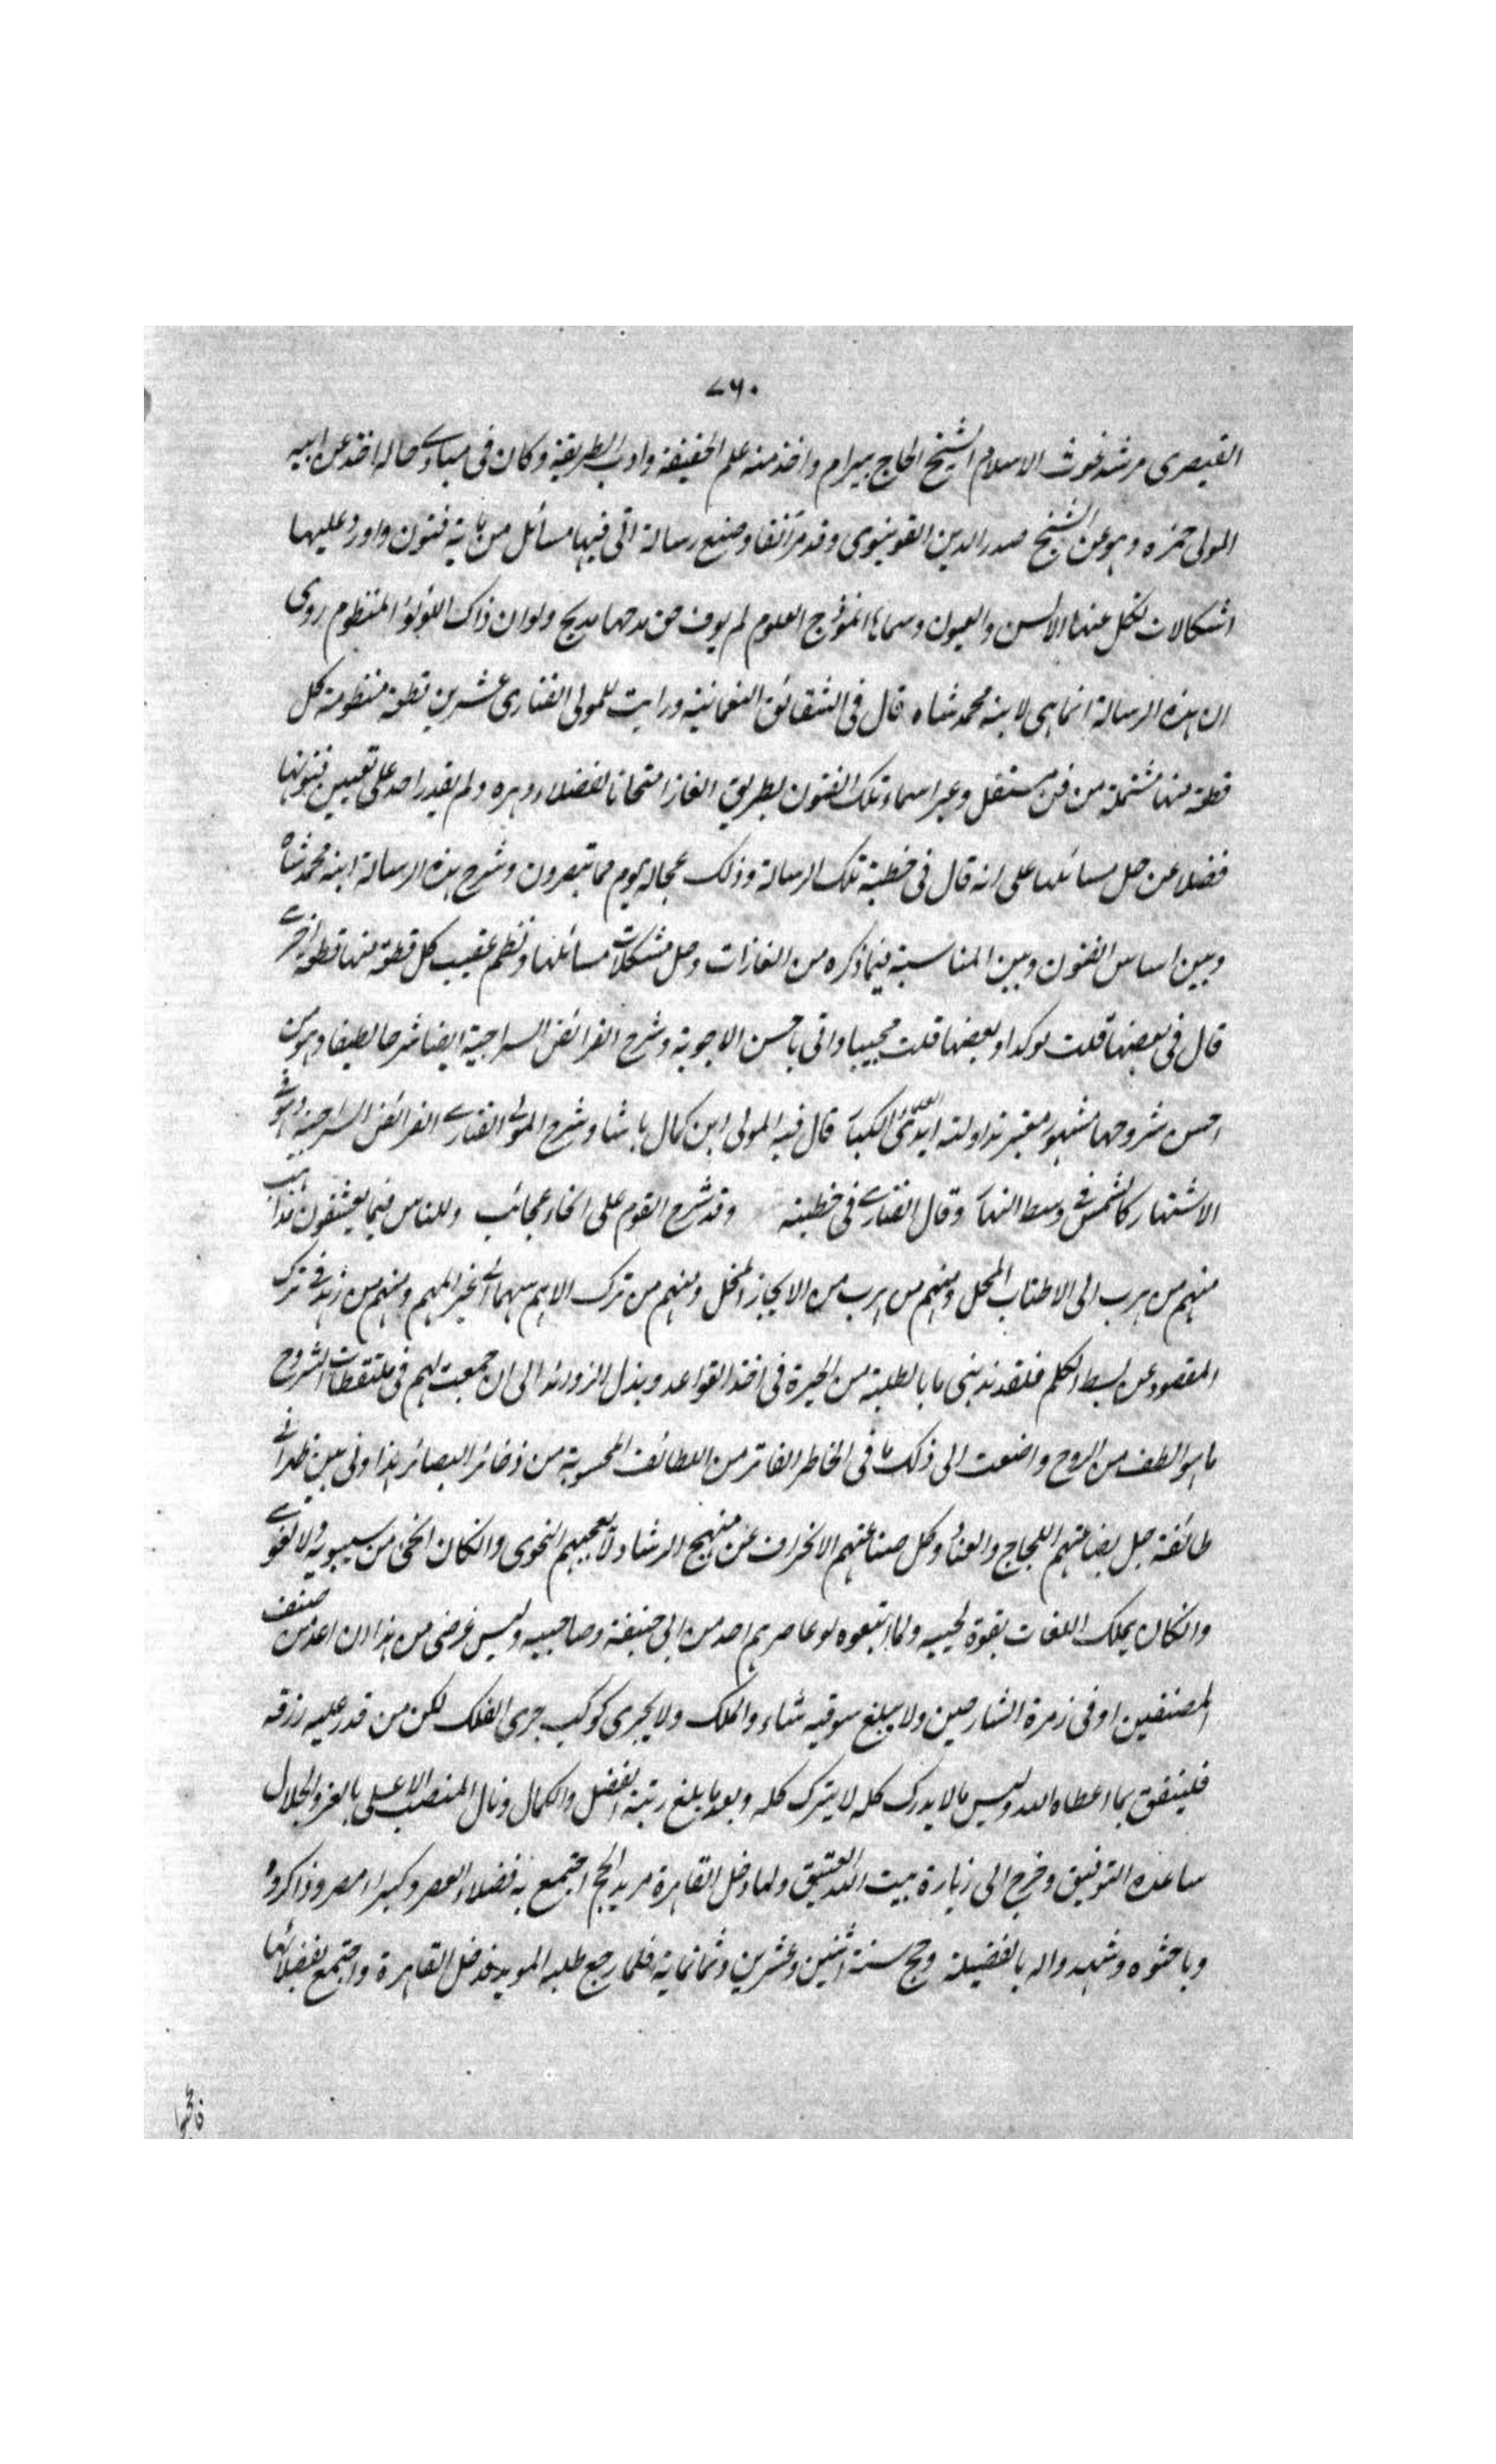 ٧٦٠
القيصرى مرشد غوث الاسلام الشيخ الحاج بيرام واخذ منه علم الحقيقة واداب الطريقة وكان فى مبادے حاله اخذ عن ابيه
المولى حمزه وهو عن الشيخ صدر الدين القونيوى وقد مر آنفا وصنع رسالة اتى فيها مسائل من ماية فنون واورد عليها
اشكالات لتكل عنها الالسن والعيون وسماها انموذج العلوم لم يوف حق مدحها مديح ولو ان ذاك اللؤلؤ المنظوم روى
ان هذه الرسالة انما هى لابنه محمد شاه قال فى الشقائق النعمانية ورايت للمولى الفنارى عشرين قطعة منظومة كل
قطعة منها مشتملة من فن مستقل وعبر اسماء تلك الفنون بطريق الغاز امتحانا لفضلاء دهره ولم يقدر احد على تعيين فنونها
فضلا عن حل مسائلها على انه قال فى خطبة تلك الرسالة وذلك عجالة يوم مما تبصرون وشرح هذه الرسالة ابنه محمد شاه
وبين اساس الفنون وبين المناسبة فيما ذكره من الغازات وحل مشكلات مسائلها ونظم عقيب كل قطعة منها قطعة اخرے
قال فى بعضها قلت موكدا وبعضها قلت مجيبا واتى باحسن الاجوبة وشرح الفرائض السراجية ايضا شرحا لطيفا وهو من
احسن شروحها مشهور معتبر تداولته ايدى العلماء الكبار قال فيه المولى ابن كمال باشا وشرح المولى الفنارے الفرائض السراجية وهو فے
الاشتهار كالشمس فے وسط النهار وقال الفنارے فى خطبته وقد شرح القوم على انحاء عجائب وللناس فيما يعشقون مذاهب
منهم من هرب الى الاطناب الممل ومنهم من هرب من الايجاز المخل ومنهم من ترك الاهم مهما الے غير المهم ومنهم من زهد فے ترك
المقصود عن بسط الكلم فلقد ندبنى ما بالطلبة من الحيرة فى اخذ القواعد وبذل الزوائد الى ان جمعت لهم فى ملتقطات الشروح
ما هو الطف من الروح واضفت الى ذلك ما فى الخاطر الفاتر من اللطائف المحسوبة من ذخائر البصائر هذا وانى بين ظهرانے
طائفة جل بضاعتهم اللجاج والعناد وكل صناعتهم الانحراف عن منهج الرشاد لا يعجبهم النحوى وان كان انحى من سيبويه ولا لغوے
وان كان يملك اللغات بقوة لحييه ولما اتبعوه لو عاصرهم احد من ابى حنيفة وصاحبيه وليس غرضى من هذا ان اعد من صنف
المصنفين او فى زمرة الشارحين ولا يبلغ سوقيه شاء والملك ولا يجرى كوكب جرى الفلك لكن من قدر عليه رزقه
فلينفق بما اعطاه الله وليس ما لا يدرك كله لا يترك كله وبعد ما بلغ رتبة الفضل والكمال ونال المنصب الاعلى بالعز والجلال
ساعده التوفيق وخرج الى زيارة بيت الله العتيق ولما دخل القاهرة مريد الحج اجتمع به فضلاء العصر وكبراء مصر وذاكروه
وباحثوه وشهدوا له بالفضيلة وحج سنة اثنين وعشرين وثمانماية فلما رجع طلبه المويد فدخل القاهرة واجتمع بفضلائها